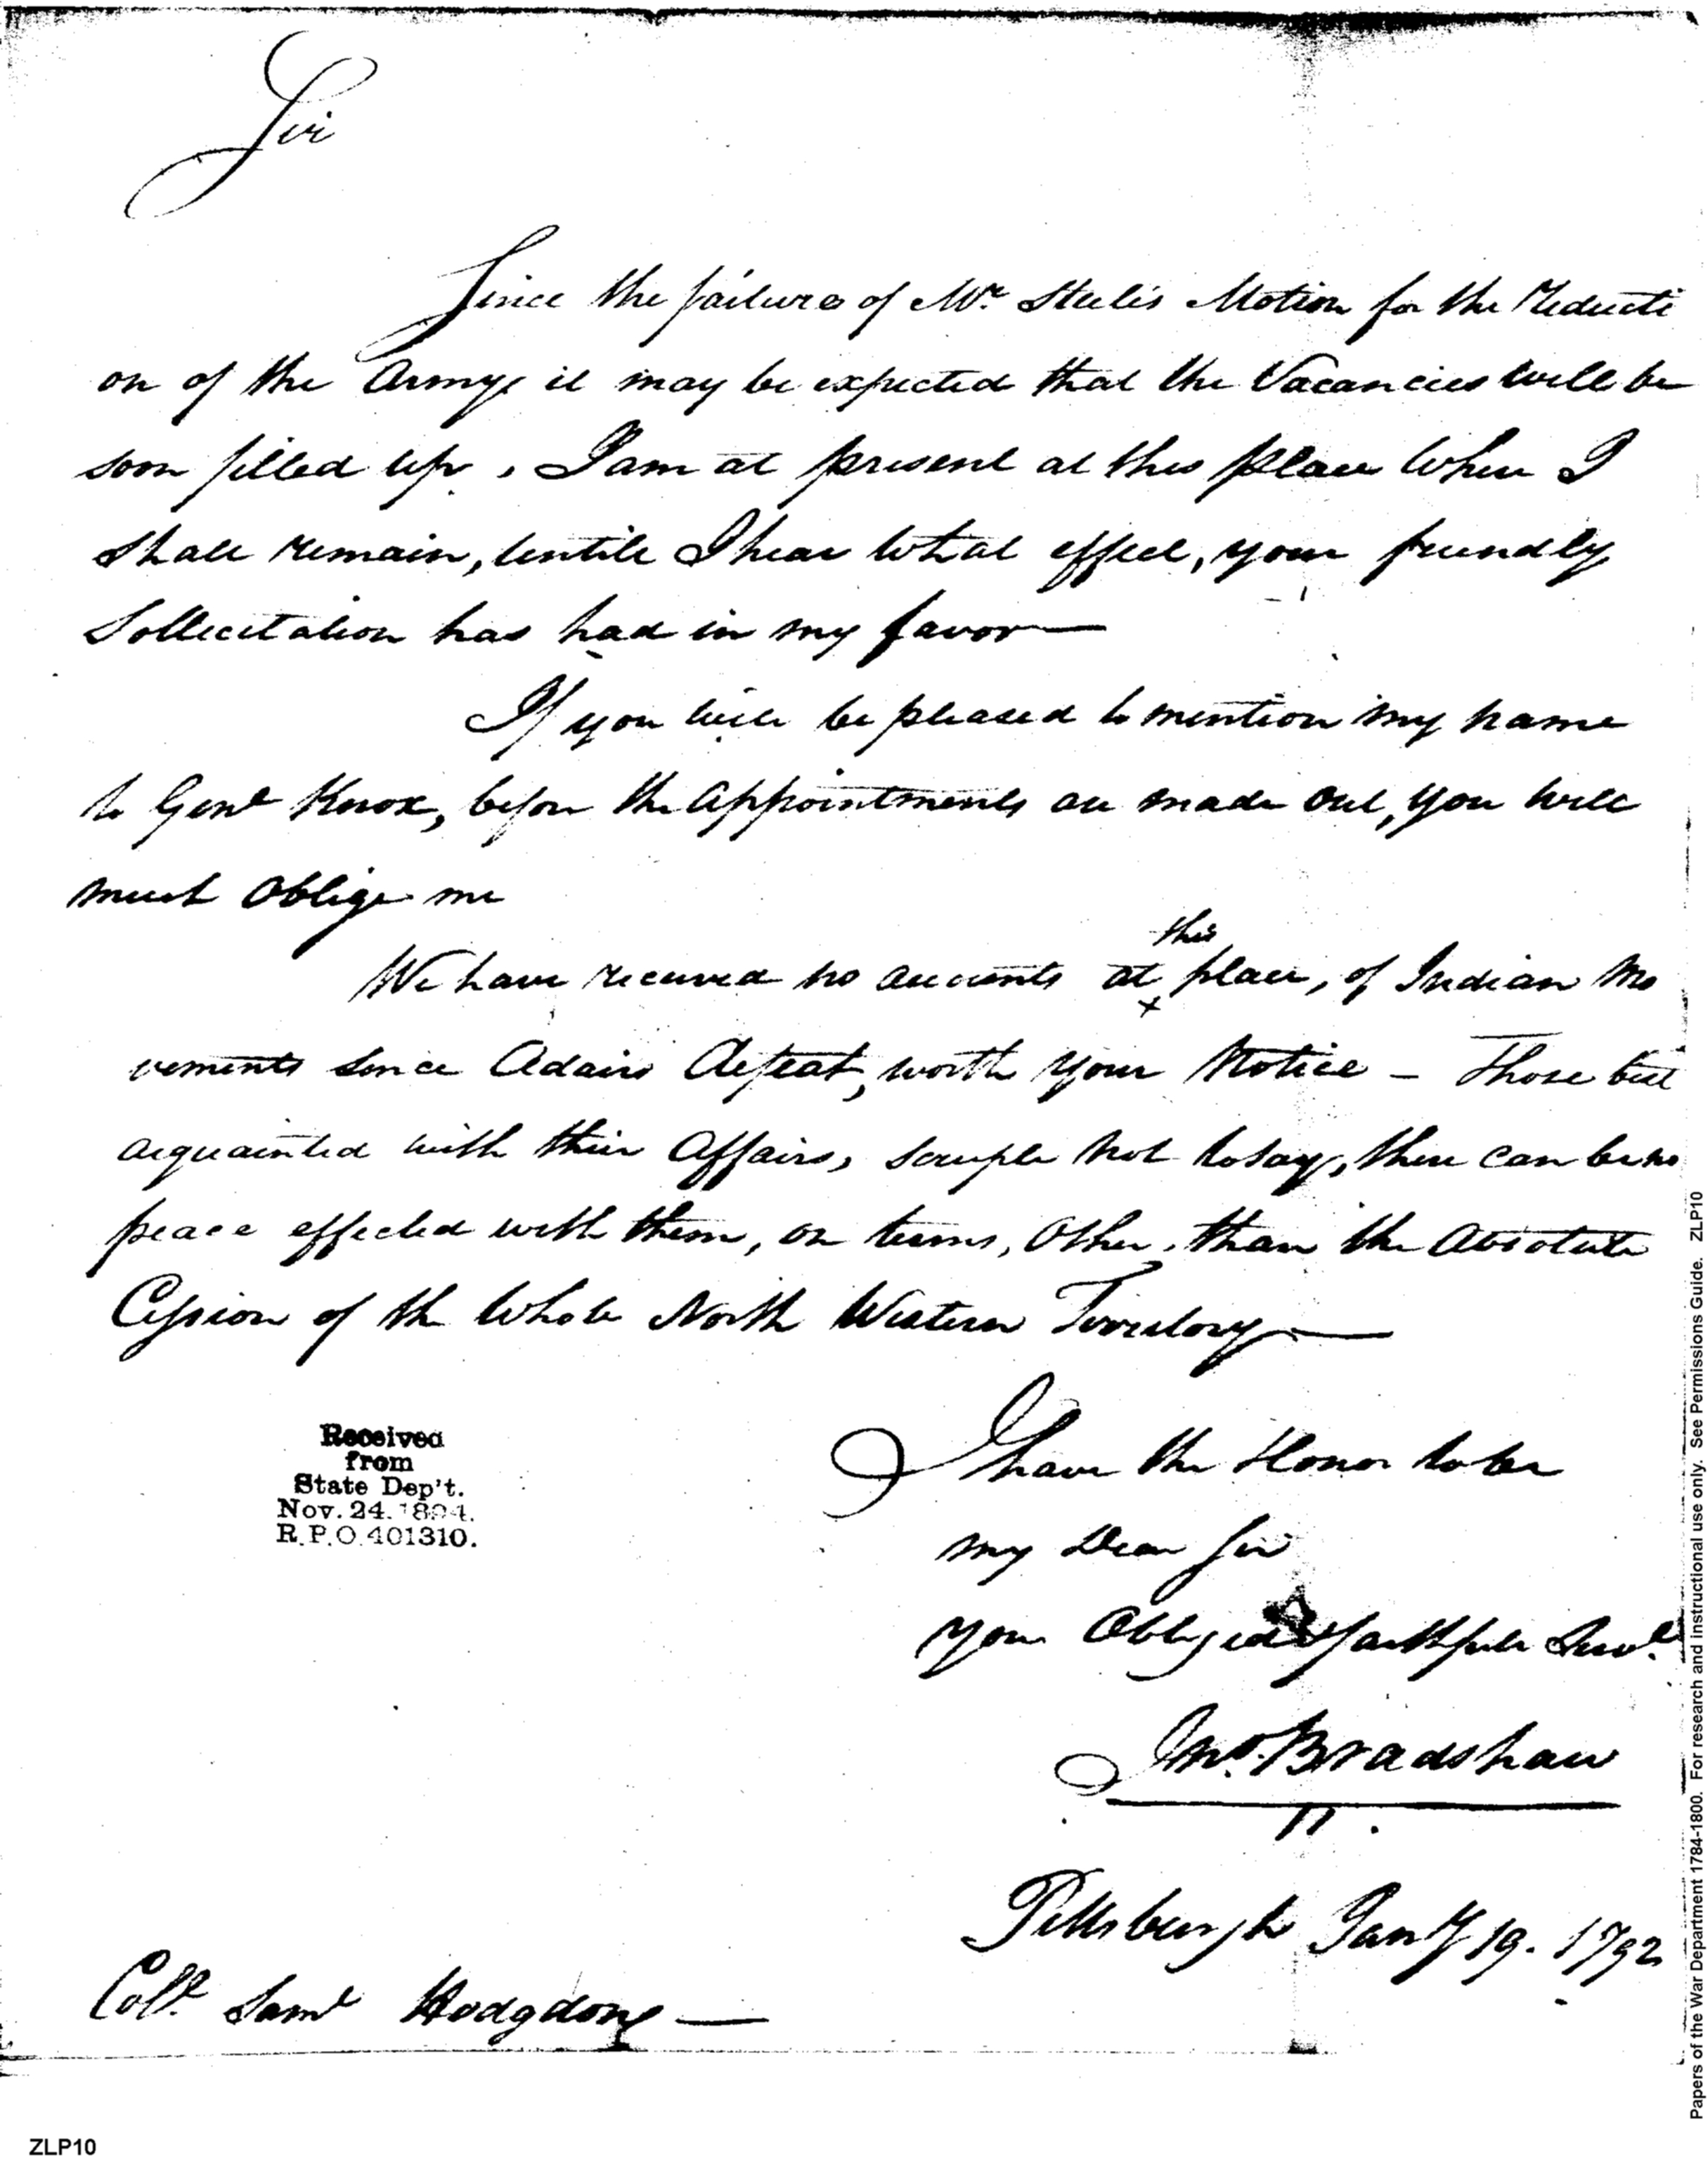 Sir
Since the failure of Mr. Steele's Motion for the Reducti
on of the Army, it may be expected that the Vacancies will be
soon filled up, I am at present at this place where I
shall remain, untill I hear what effect, your friendly
Sollicitation has had in my favor—
If you will be pleased to mention my name
to Genl Knox, before the appointments are made out, you will
much oblige me
this
We have received no accounts at place, of Indian Mo
x
vements since Adairs defeat, worth your Notice – Those best
acquainted with their affairs, scruple not to say, there can be no
peace effected with them, on terms, other, than the absolute
Cession of the whole North Western Territory—
I have the Honor to be
my Dear Sir
your Obliged & faithfull Servt.
Jno. Bradshaw
Pittsburgh Jany 19. 1792
Coll. Saml Hodgdone —
Received
from
State Dep't.
Nov. 24. 1894.
R.P.O. 401310.
Papers of the War Department 1784-1800. For research and instructional use only. See Permissions Guide. ZLP10
ZLP10